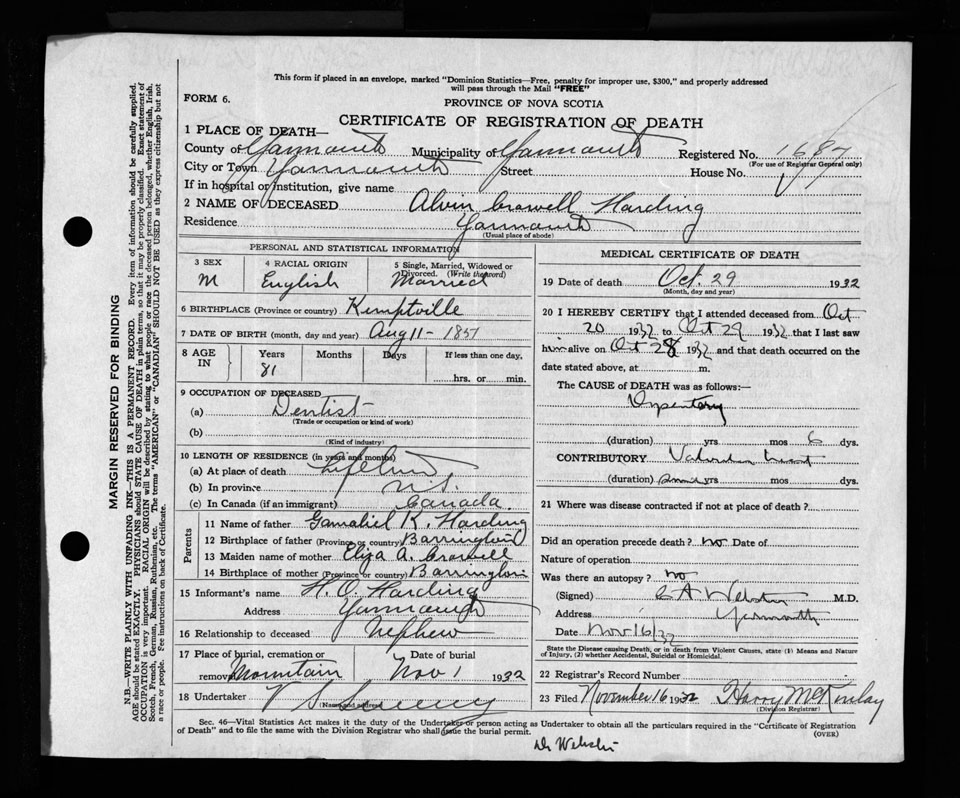 This form if placed in an envelope, marked "Dominion Statistics—Free, penalty for improper use, $300," and properly addressed
will pass through the Mail "FREE"
FORM 6.
PROVINCE OF NOVA SCOTIA
CERTIFICATE OF REGISTRATION OF DEATH
1 PLACE OF DEATH—
County of Yarmouth Municipality of Yarmouth Registered No. 1687
(For use of Registrar General only)
City or Town Yarmouth Street House No.
If in hospital or institution, give name
2 NAME OF DECEASED Alvin Crowell Harding
Residence Yarmouth
(Usual place of abode)
PERSONAL AND STATISTICAL INFORMATION
3 SEX 4 RACIAL ORIGIN 5 Single, Married, Widowed or
Divorced. (Write the word)
M English Married
6 BIRTHPLACE (Province or country) Kemptville
7 DATE OF BIRTH (month, day and year) Aug 11 - 1851
8 AGE IN Years Months Days If less than one day,
81 hrs. or min.
9 OCCUPATION OF DECEASED
(a) Dentist
(Trade or occupation or kind of work)
(b)
(Kind of industry)
10 LENGTH OF RESIDENCE (in years and months)
(a) At place of death Lifetime
(b) In province N.S.
(c) In Canada (if an immigrant) Canada.
Parents
11 Name of father Gamaliel K. Harding
12 Birthplace of father (Province or country) Barrington
13 Maiden name of mother Eliza A. Crowell
14 Birthplace of mother (Province or country) Barrington
15 Informant's name H. O. Harding
Address Yarmouth
16 Relationship to deceased Nephew
17 Place of burial, cremation or Date of burial
removal Mountain Nov 1 1932
18 Undertaker V S Sweeny
(Name and address)
MEDICAL CERTIFICATE OF DEATH
19 Date of death Oct. 29 1932
(Month, day and year)
20 I HEREBY CERTIFY that I attended deceased from Oct
20 1932 to Oct 29 1932 that I last saw
him alive on Oct 28 1932 and that death occurred on the
date stated above, at m.
The CAUSE OF DEATH was as follows:—
Dysentery
(duration) yrs mos 6 dys.
CONTRIBUTORY Valvular heart
(duration) some yrs mos dys.
21 Where was disease contracted if not at place of death?
Did an operation precede death? no Date of
Nature of operation
Was there an autopsy? no
(Signed) E A Webster M.D.
Address Yarmouth
Date Nov 16/32
State the Disease causing Death, or in death from Violent Causes, state (1) Means and Nature
of Injury, (2) whether Accidental, Suicidal or Homicidal.
22 Registrar's Record Number
23 Filed November 16 1932 Harry McKinlay
(Division Registrar)
Sec. 46—Vital Statistics Act makes it the duty of the Undertaker or person acting as Undertaker to obtain all the particulars required in the "Certificate of Registration
of Death" and to file the same with the Division Registrar who shall issue the burial permit.
(OVER)
Dr Webster
MARGIN RESERVED FOR BINDING
N.B.—WRITE PLAINLY WITH UNFADING INK—THIS IS A PERMANENT RECORD. Every item of information should be carefully supplied.
AGE should be stated EXACTLY. PHYSICIANS should STATE CAUSE OF DEATH in plain terms, so that it may be properly classified. Exact statement of
OCCUPATION is very important. RACIAL ORIGIN will be described by stating to what people or race the deceased person belonged, whether English, Irish,
Scotch, French, German, Russian, Ruthenian, etc. The terms "AMERICAN" or "CANADIAN" SHOULD NOT BE USED as they express citizenship but not
a race or people. Fee instructions on back of Certificate.